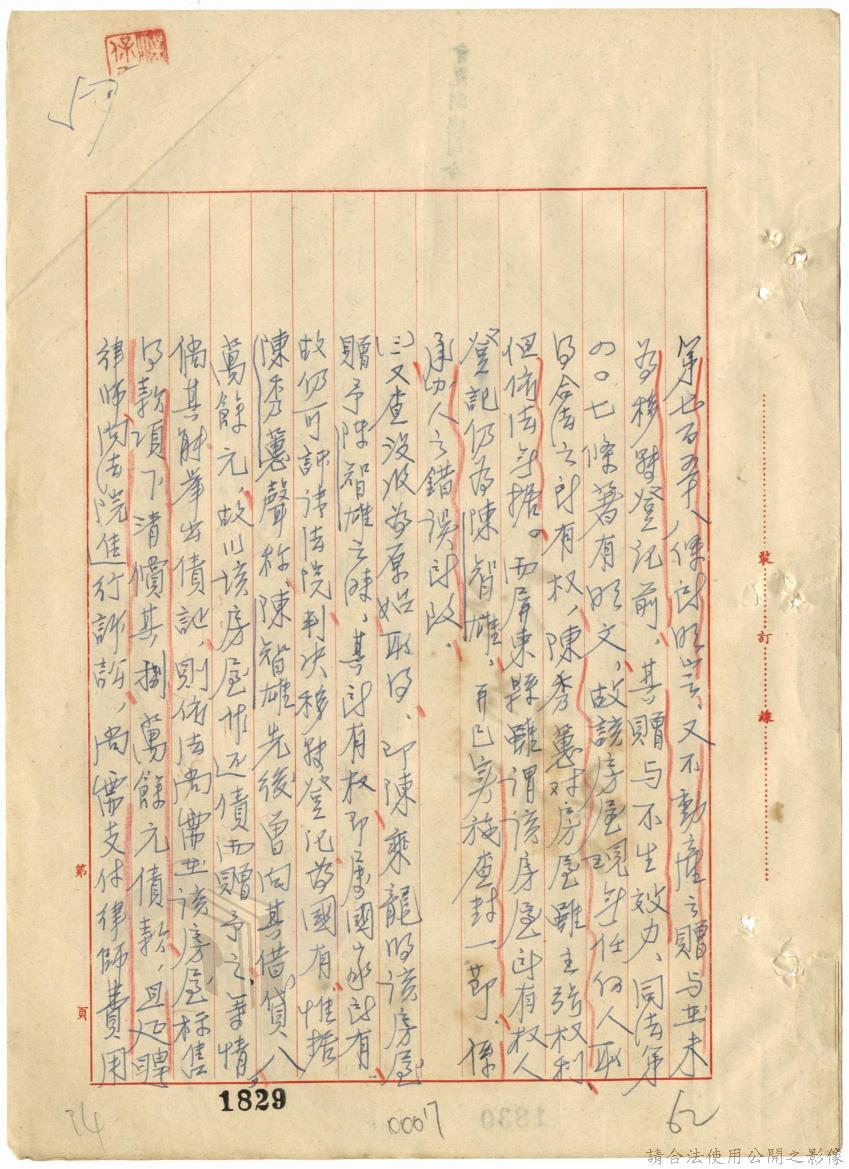 第七百五十八條所明定、又不動產之贈与在未
為移轉登記前、其贈与不生效力、同法第
四〇七條著有明文、故該房屋現無任何人取
得合法之所有权、陳秀蕙对房屋雖主張权利
但依法無据。而屏東縣雖謂該房屋所有权人
登記仍為陳智雄、再已実施查封一節、係
承办人之錯誤所致。
(三)又查没收為原始取得、即陳乘龍將該房屋
贈予陳智雄之時、其所有权即屬國家所有
故仍可訴请法院判决移轉登记為國有、惟据
陳秀蕙聲称陳智雄先後曾向其借貸八
萬餘元、故以該房屋作还債而贈予之等情
倘其能举出債証、則依法尚需在該房屋标售
得款項下清償其捌萬餘元債款、且延聘
律師向法院進行訴訟、尚需支付律師費用
裝訂線
第
頁
1829
0007
62
34
請合法使用公開之影像